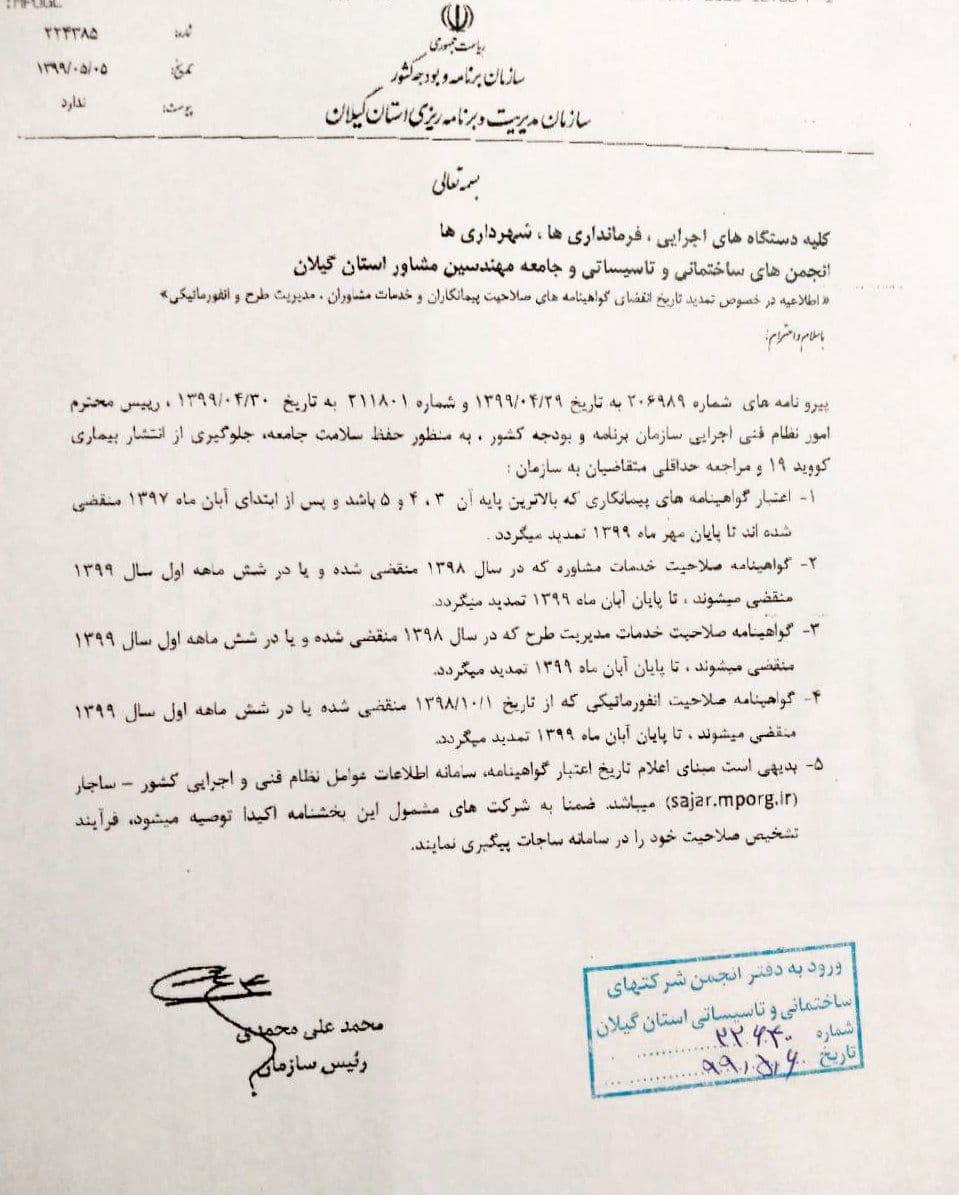 ریاست جمهوری
سازمان برنامه و بودجه کشور
سازمان مدیریت و برنامه ریزی استان گیلان
شماره: ۲۲۴۳۸۵
تاریخ: ۱۳۹۹/۰۵/۰۵
پیوست: ندارد
بسمه تعالی
کلیه دستگاه های اجرایی ، فرمانداری ها ، شهرداری ها
انجمن های ساختمانی و تاسیساتی و جامعه مهندسین مشاور استان گیلان
«اطلاعیه در خصوص تمدید تاریخ انقضای گواهینامه های صلاحیت پیمانکاران و خدمات مشاوران ، مدیریت طرح و انفورماتیکی»
باسلام واحترام؛
پیرو نامه های شماره ۲۰۶۹۸۹ به تاریخ ۱۳۹۹/۰۴/۲۹ و شماره ۲۱۱۸۰۱ به تاریخ ۱۳۹۹/۰۴/۳۰ ، رییس محترم
امور نظام فنی اجرایی سازمان برنامه و بودجه کشور ، به منظور حفظ سلامت جامعه، جلوگیری از انتشار بیماری
کووید ۱۹ و مراجعه حداقلی متقاضیان به سازمان :
۱- اعتبار گواهینامه های پیمانکاری که بالاترین پایه آن ۳ ، ۴ و ۵ باشد و پس از ابتدای آبان ماه ۱۳۹۷ منقضی
شده اند تا پایان مهر ماه ۱۳۹۹ تمدید میگردد .
۲- گواهینامه صلاحیت خدمات مشاوره که در سال ۱۳۹۸ منقضی شده و یا در شش ماهه اول سال ۱۳۹۹
منقضی میشوند ، تا پایان آبان ماه ۱۳۹۹ تمدید میگردد.
۳- گواهینامه صلاحیت خدمات مدیریت طرح که در سال ۱۳۹۸ منقضی شده و یا در شش ماهه اول سال ۱۳۹۹
منقضی میشوند ، تا پایان آبان ماه ۱۳۹۹ تمدید میگردد.
۴- گواهینامه صلاحیت انفورماتیکی که از تاریخ ۱۳۹۸/۱۰/۱ منقضی شده یا در شش ماهه اول سال ۱۳۹۹
منقضی میشوند ، تا پایان آبان ماه ۱۳۹۹ تمدید میگردد.
۵- بدیهی است مبنای اعلام تاریخ اعتبار گواهینامه، سامانه اطلاعات عوامل نظام فنی و اجرایی کشور – ساجار
(sajar.mporg.ir) میباشد. ضمنا به شرکت های مشمول این بخشنامه اکیدا توصیه میشود، فرآیند
تشخیص صلاحیت خود را در سامانه ساجات پیگیری نمایند.
محمد علی محمدی
رئیس سازمان
ورود به دفتر انجمن شرکتهای
ساختمانی و تاسیساتی استان گیلان
شماره ۲۲۶۴۰
تاریخ ۹۹/۵/۶